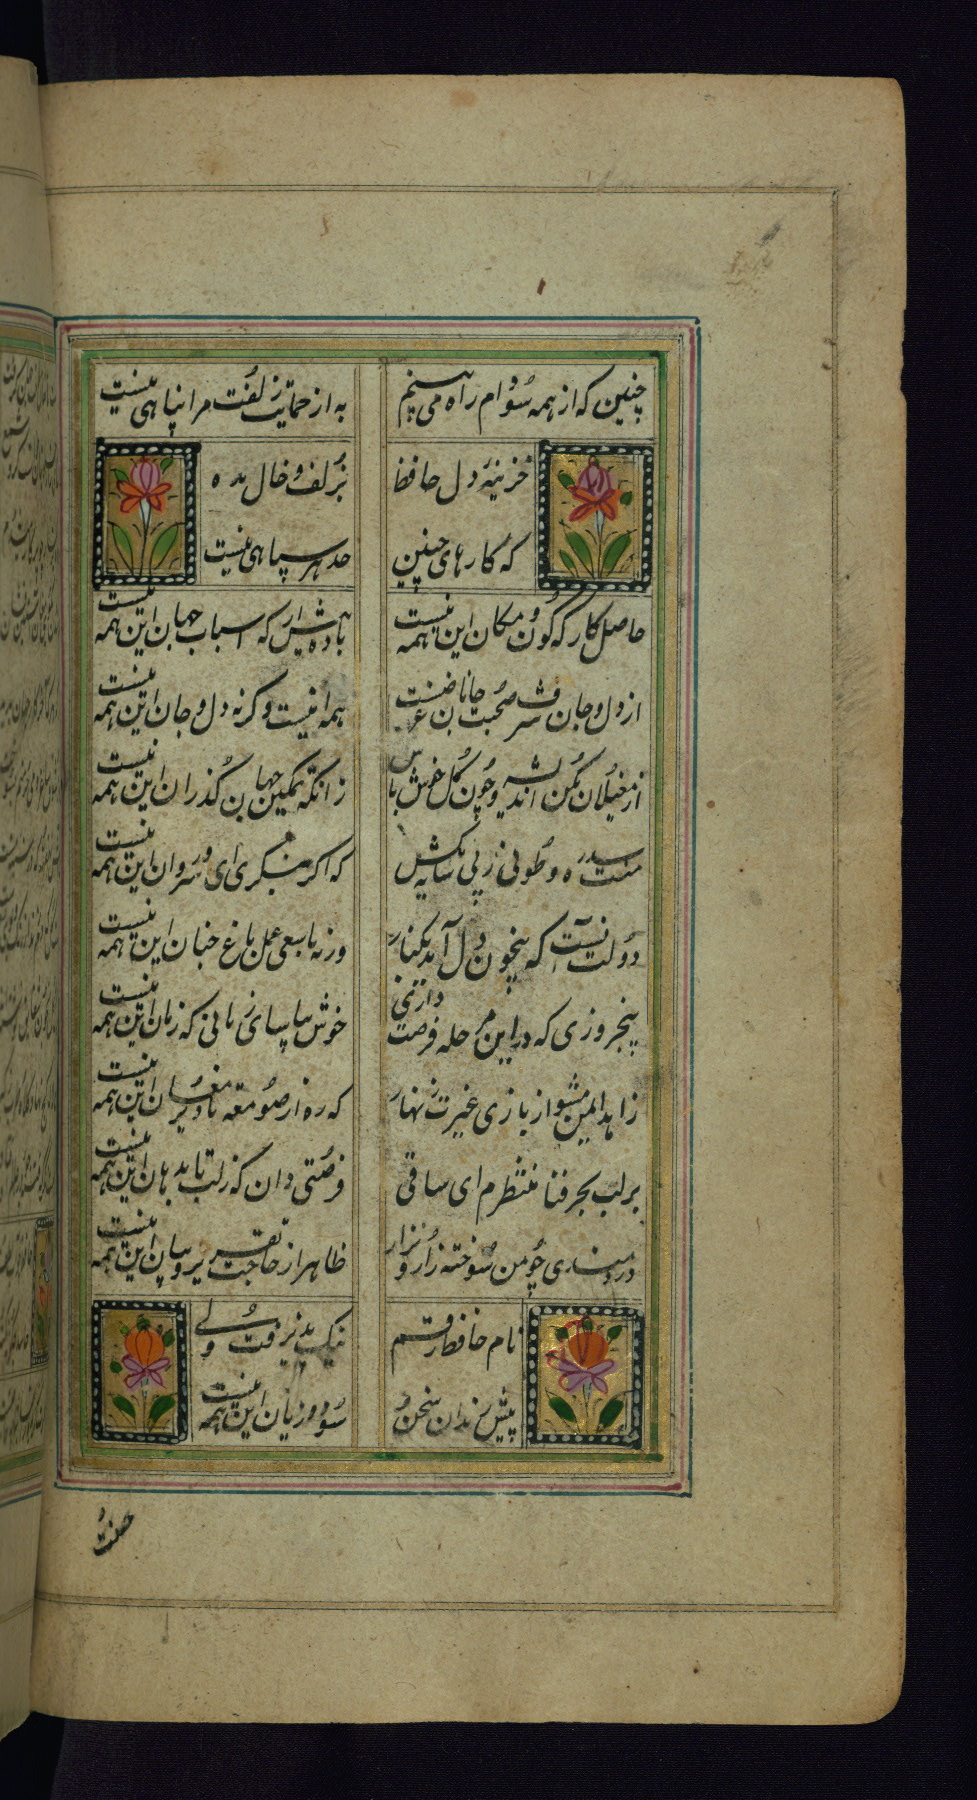 چنین که از همه سو دام راه می بینم
به از حمایت زلفت مرا پناهی نیست
خزینهٔ دل حافظ
بزلف و خال مده
که کارهای چنین
حد هر سیاهی نیست
حاصل کار که کون و مکان این همه نیست
باده پیش آر که اسباب جهان این همه نیست
از دل و جان شرف صحبت جانان غرضست
همه آنیست و کرنه دل و جان این همه نیست
از مغیلان مکن اندیشه و چون کل خوش باش
زانکه تمکین جهان گذران این همه نیست
منت سدره و طوبی ز پی سایه مکش
که اکر بنکری ای سرو روان این همه نیست
دولت آنست که بیخون دل آید بکنار
ورنه با سعی عمل باغ جنان این همه نیست
پنجروزی که در این مرحله فرصت داری
خوش بیاسای زمانی که زمان این همه نیست
زاهد ایمن مشو از بازی غیرت زنهار
که ره از صومعه تا دیر مغان این همه نیست
بر لب بحر فنا منتظرم ای ساقی
فرصتی دان که ز لب تا بدهان این همه نیست
دردمندی چو من سوخته زار و نزار
ظاهرا حاجت تقریر و بیان این همه نیست
نام حافظ رقم
نیک پذیرفت ولی
پیش رندان سخن
سود و زیان این همه نیست